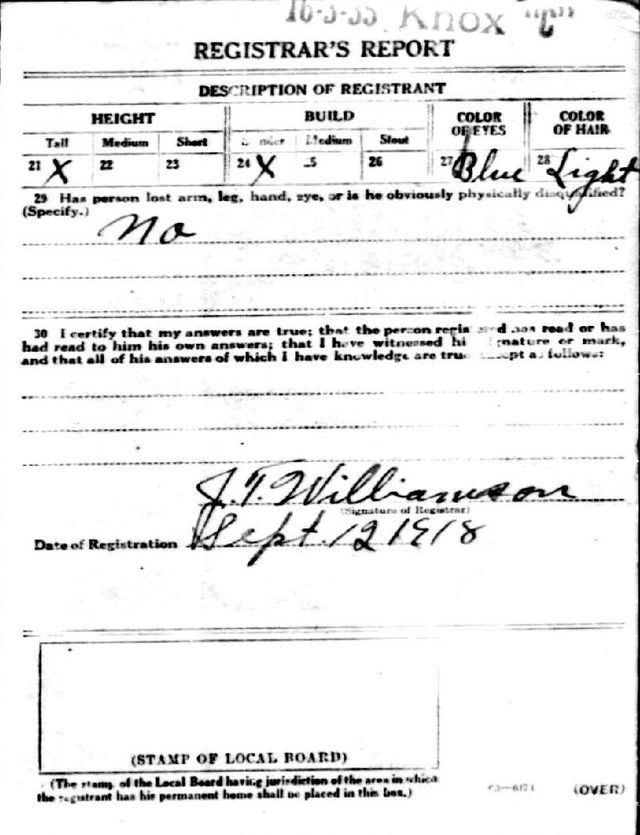 16-3-35 Knox "C"
REGISTRAR'S REPORT
DESCRIPTION OF REGISTRANT
HEIGHT BUILD COLOR OF EYES COLOR OF HAIR
Tall Medium Short Slender Medium Stout
21 X 22 23 24 X 25 26 27 Blue 28 Light
29 Has person lost arm, leg, hand, eye, or is he obviously physically disqualified?
(Specify.)
No
30 I certify that my answers are true; that the person registered has read or has
had read to him his own answers; that I have witnessed his signature or mark,
and that all of his answers of which I have knowledge are true, except as follows:
J. T. Williamson
(Signature of Registrar)
Date of Registration Sept. 12 1918
(STAMP OF LOCAL BOARD)
(The stamp of the Local Board having jurisdiction of the area in which
the registrant has his permanent home shall be placed in this box.)
(OVER)